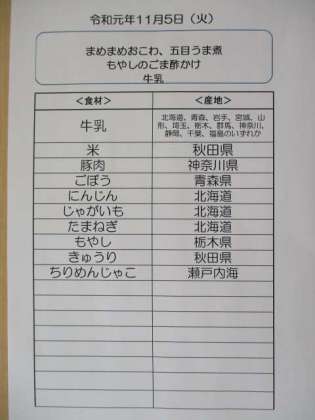 令和元年11月5日（火）
まめまめおこわ、五目うま煮
もやしのごま酢かけ
牛乳
＜食材＞ ＜産地＞
牛乳 北海道、青森、岩手、宮城、山
形、埼玉、栃木、群馬、神奈川、
静岡、千葉、福島のいずれか
米 秋田県
豚肉 神奈川県
ごぼう 青森県
にんじん 北海道
じゃがいも 北海道
たまねぎ 北海道
もやし 栃木県
きゅうり 秋田県
ちりめんじゃこ 瀬戸内海